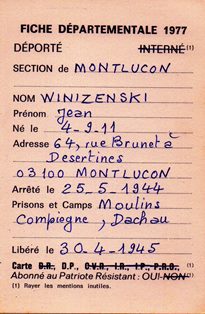 FICHE DÉPARTEMENTALE 1977
DÉPORTÉ INTERNÉ (1)
SECTION de MONTLUCON
NOM WINIZENSKI
Prénom Jean
Né le 4-9-11
Adresse 64, rue Brunet à
Desertines
03100 MONTLUCON
Arrêté le 25-5-1944
Prisons et Camps Moulins
Compiegne, Dachau
Libéré le 30-4-1945
Carte D.R., D.P., C.V.R., I.R., I.P., P.R.O., (1)
Abonné au Patriote Résistant : OUI-NON (1)
(1) Rayer les mentions inutiles.